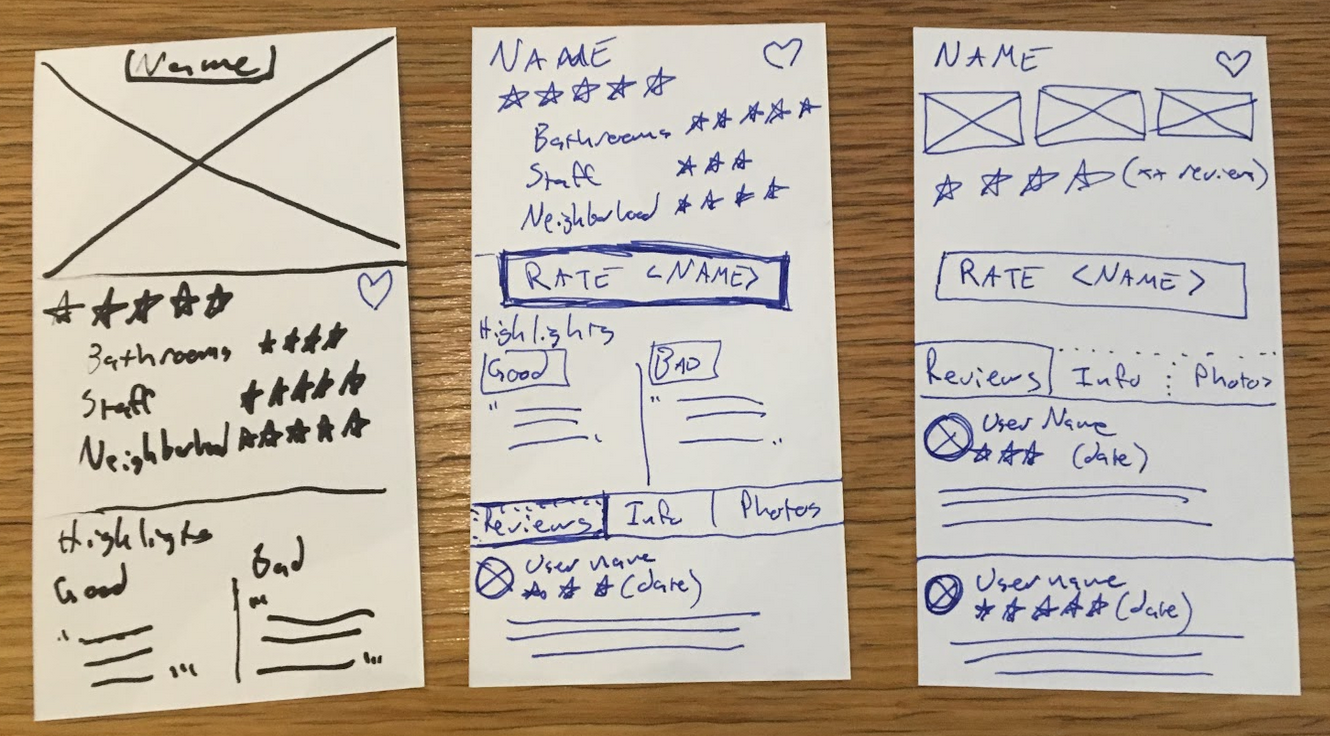 Name
Bathrooms
Staff
Neighborhood
Highlights
Good
Bad
NAME
Bathrooms
Staff
Neighborhood
RATE <NAME>
Highlights
Good
BAD
Reviews Info Photos
User name
(date)
NAME
RATE <NAME>
Reviews Info Photos
User Name
(date)
User name
(date)